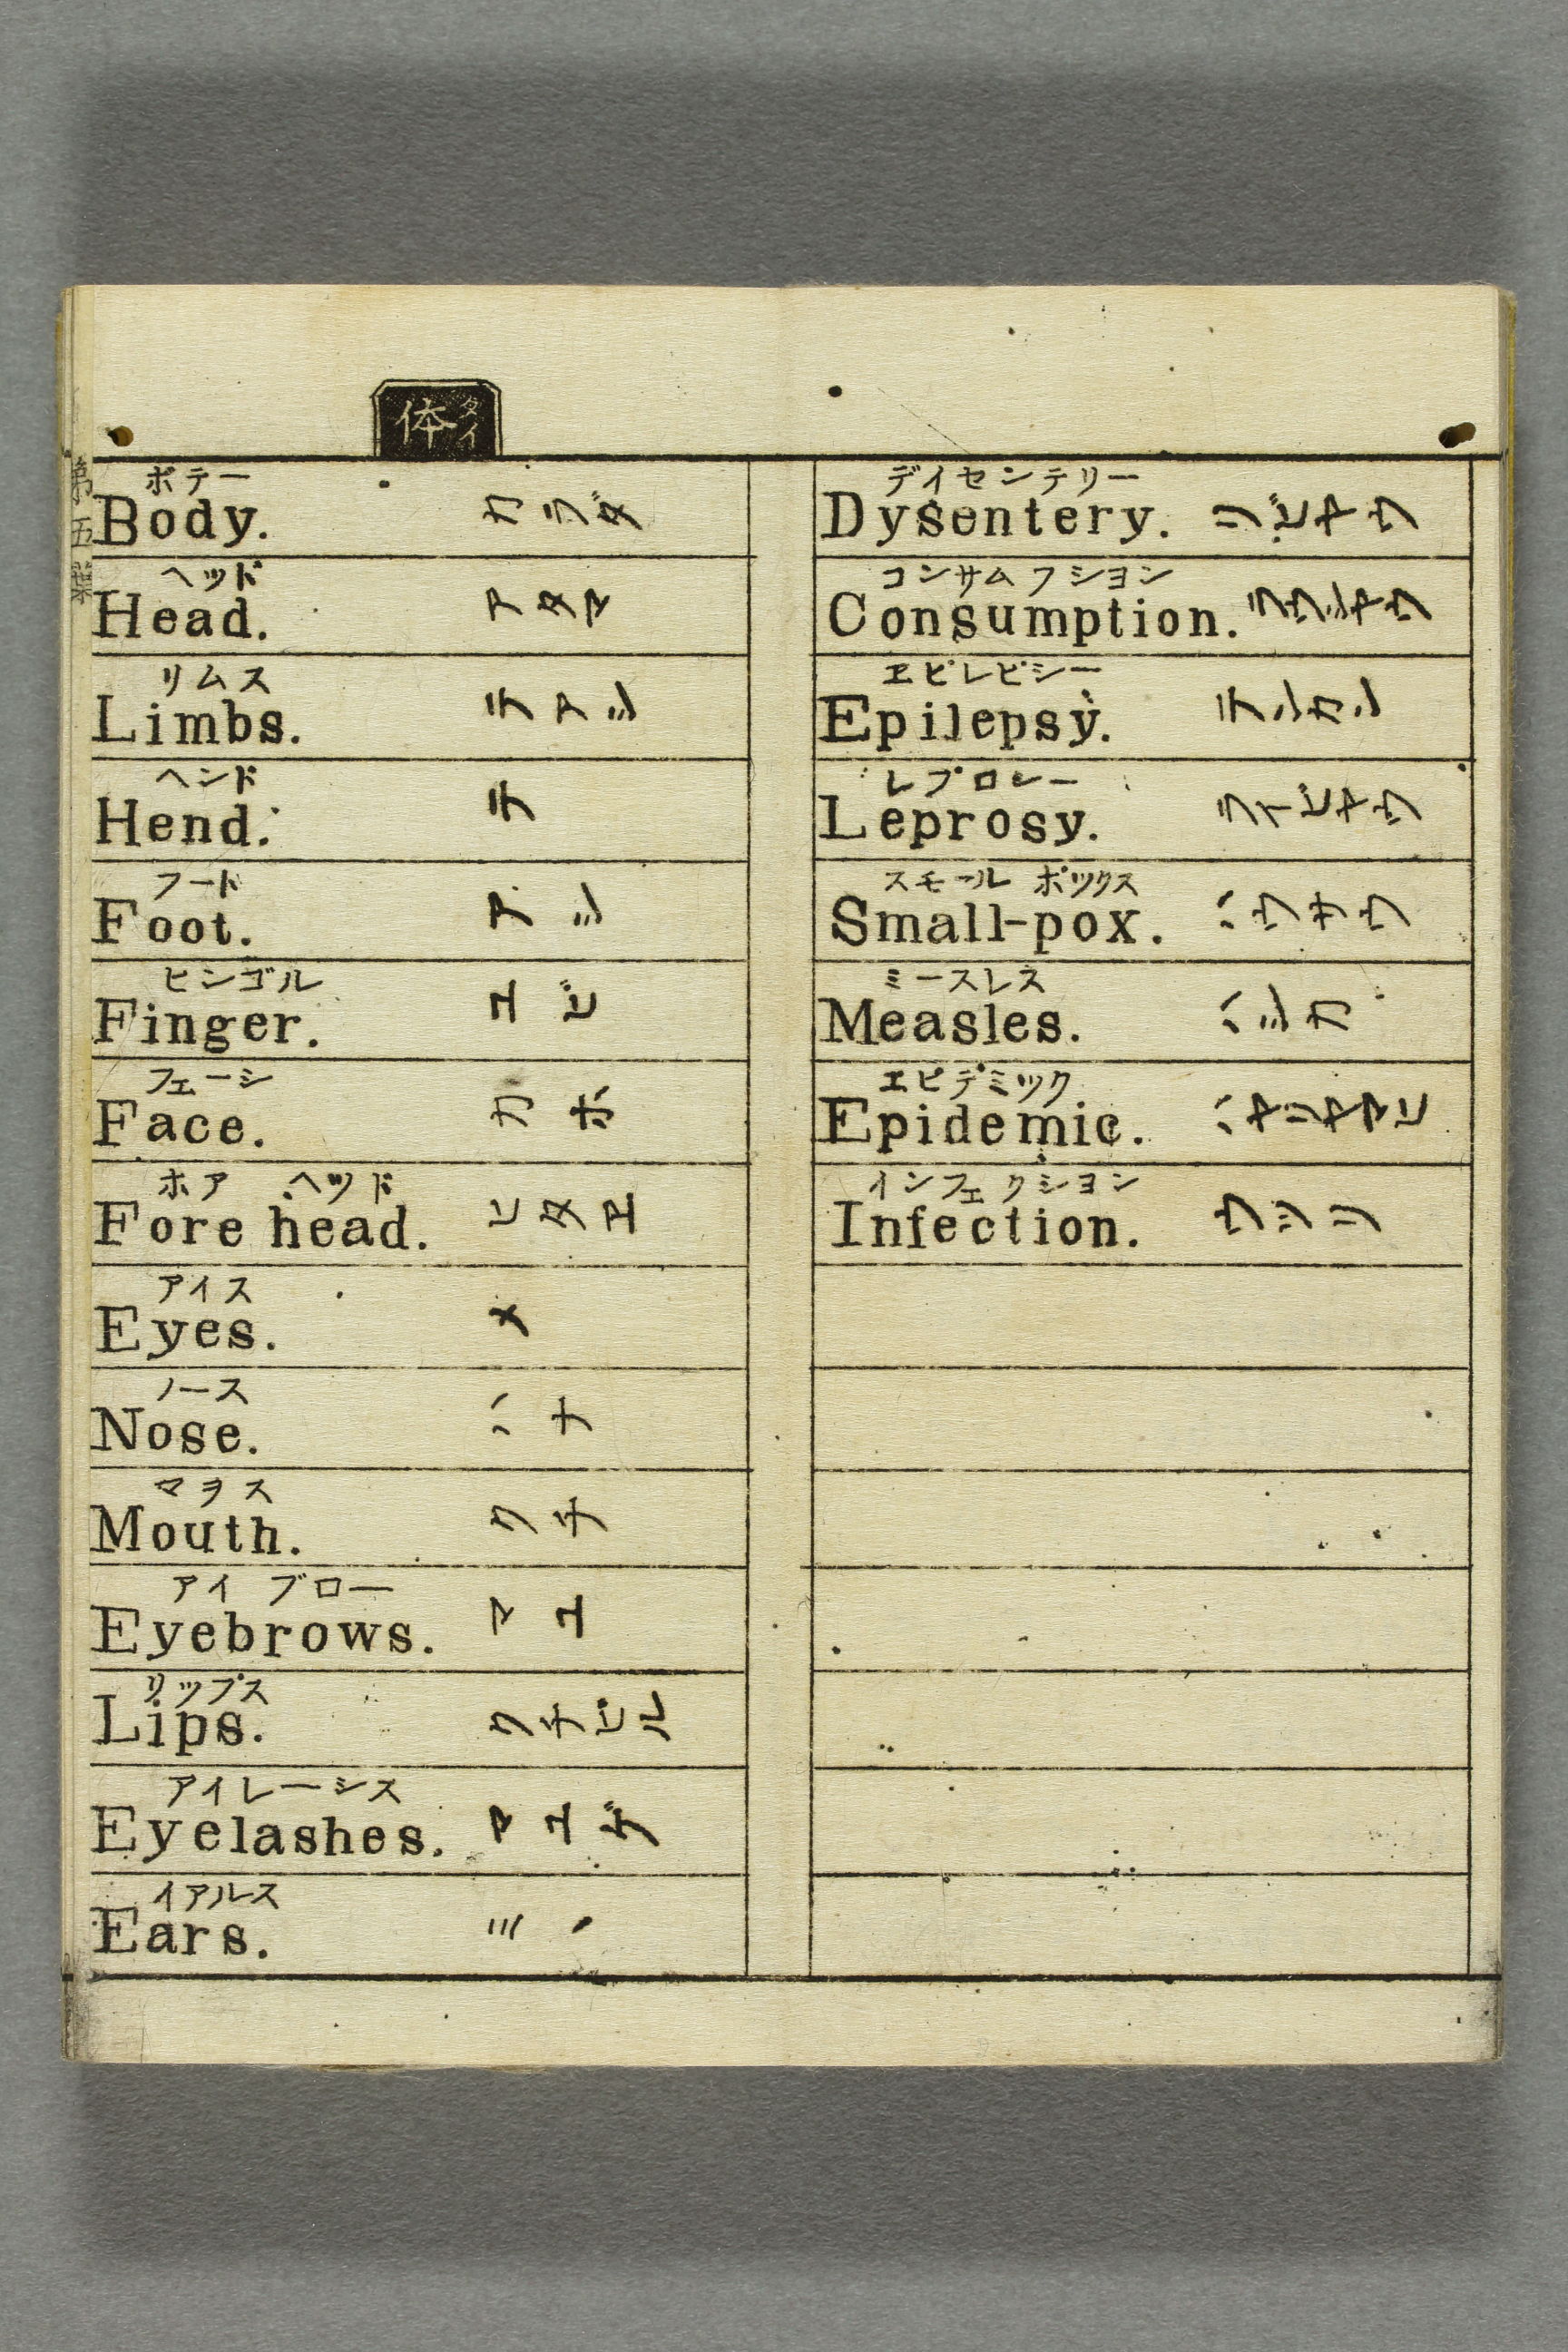 デイセンテリー
Dysentery. リビヤウ
コンサムフシヨン
Consumption. ラウシヤウ
ヱピレピシー
Epilepsy. テンカン
レプロシー
Leprosy. ライビヤウ
スモール ポツクス
Small-pox. ハウサウ
ミースレス
Measles. ハシカ
エピデミツク
Epidemic. ハヤリヤマヒ
インフェクシヨン
Infection.
体 タイ
第五葉
ボテー
Body. カラダ
ヘッド
Head. アタマ
リムス
Limbs. テアシ
ヘンド
Hend. テ
フード
Foot. アシ
ヒンゴル
Finger. ユビ
フェーシ
Face. カホ
ホア ヘツド
Fore head. ヒタヱ
アイス
Eyes. メ
ノース
Nose. ハナ
マヲス
Mouth. クチ
アイ ブロー
Eyebrows. マユ
リップス
Lips. クチビル
アイレーシス
Eyelashes. マユゲ
イアルス
Ears. ミヽ